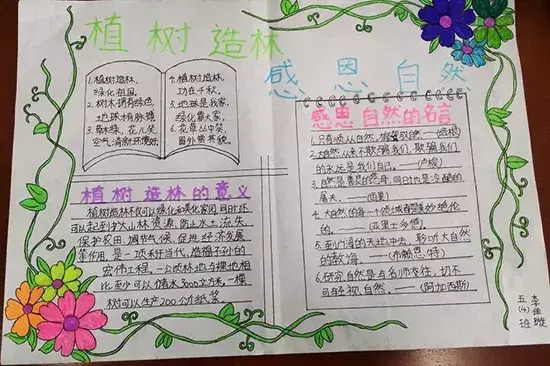 植树造林
感恩自然
1.植树造林,
绿化祖国,
2.树木拥有绿色,
地球才有脉搏
3.草木绿,花儿笑,
空气清新环境好
4.植树造林,
功在千秋,
5.地球是我家,
绿化靠大家,
6.花草丛中笑,
园外赏其貌
植树造林的意义
植树造林不仅可以绿化和美化家园,同时还
可以起到扩大山林资源,防止水土流失,
保护农田,调节气候,促进经济发展
等作用,是一项利于当代,造福子孙的
宏伟工程,一公顷林地与裸地相
比至少可以储水3000立方米,一棵
树可以生产200公斤纸浆
感恩自然的名言
1.只有顺从自然,
——(培根)
2.大自然从来不欺骗我们,欺骗我们
的永远是我们自己。——(卢梭)
3.自然是善良的慈母,同时也是冷酷的
屠夫。——(雨果)
4.大自然的每一个领域都是美妙绝伦
的。——(亚里士多德)
5.至于博的天地中去,聆听大自然
的教诲。——(布赖恩特)
6.研究自然是与名师交往,切不
可轻视自然。——(阿加西斯)
五(4)班
李佳璇